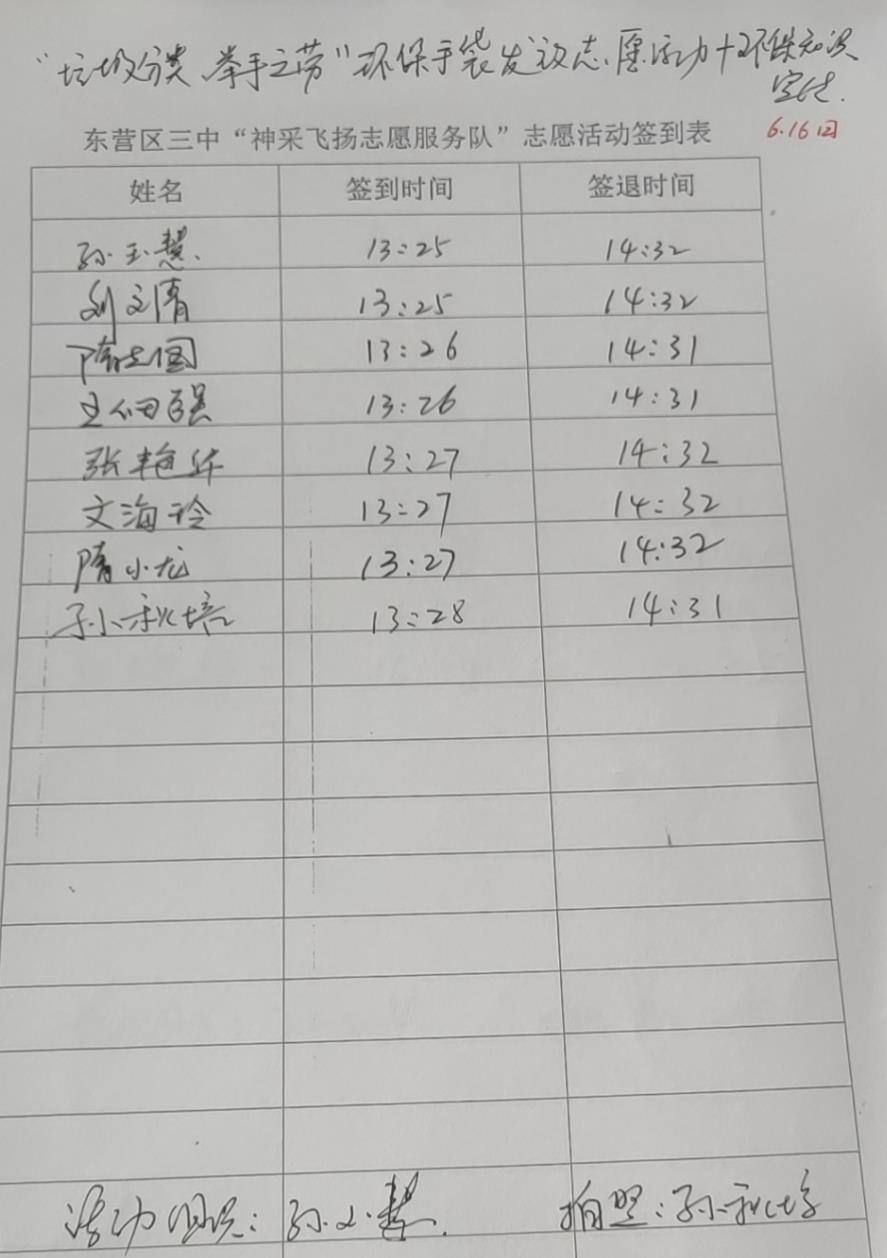 “垃圾分类 举手之劳”环保手袋发放志愿活动+环保知识
宣传.
东营区三中“神采飞扬志愿服务队”志愿活动签到表 6.16日
姓名 签到时间 签退时间
孙玉慧. 13:25 14:32
刘文清 13:25 14:32
隋志国 13:26 14:31
王 13:26 14:31
张艳华 13:27 14:32
文海玲 13:27 14:32
隋小龙 13:27 14:32
孙秋培 13:28 14:31
活动组织: 孙玉慧. 拍照:孙秋培